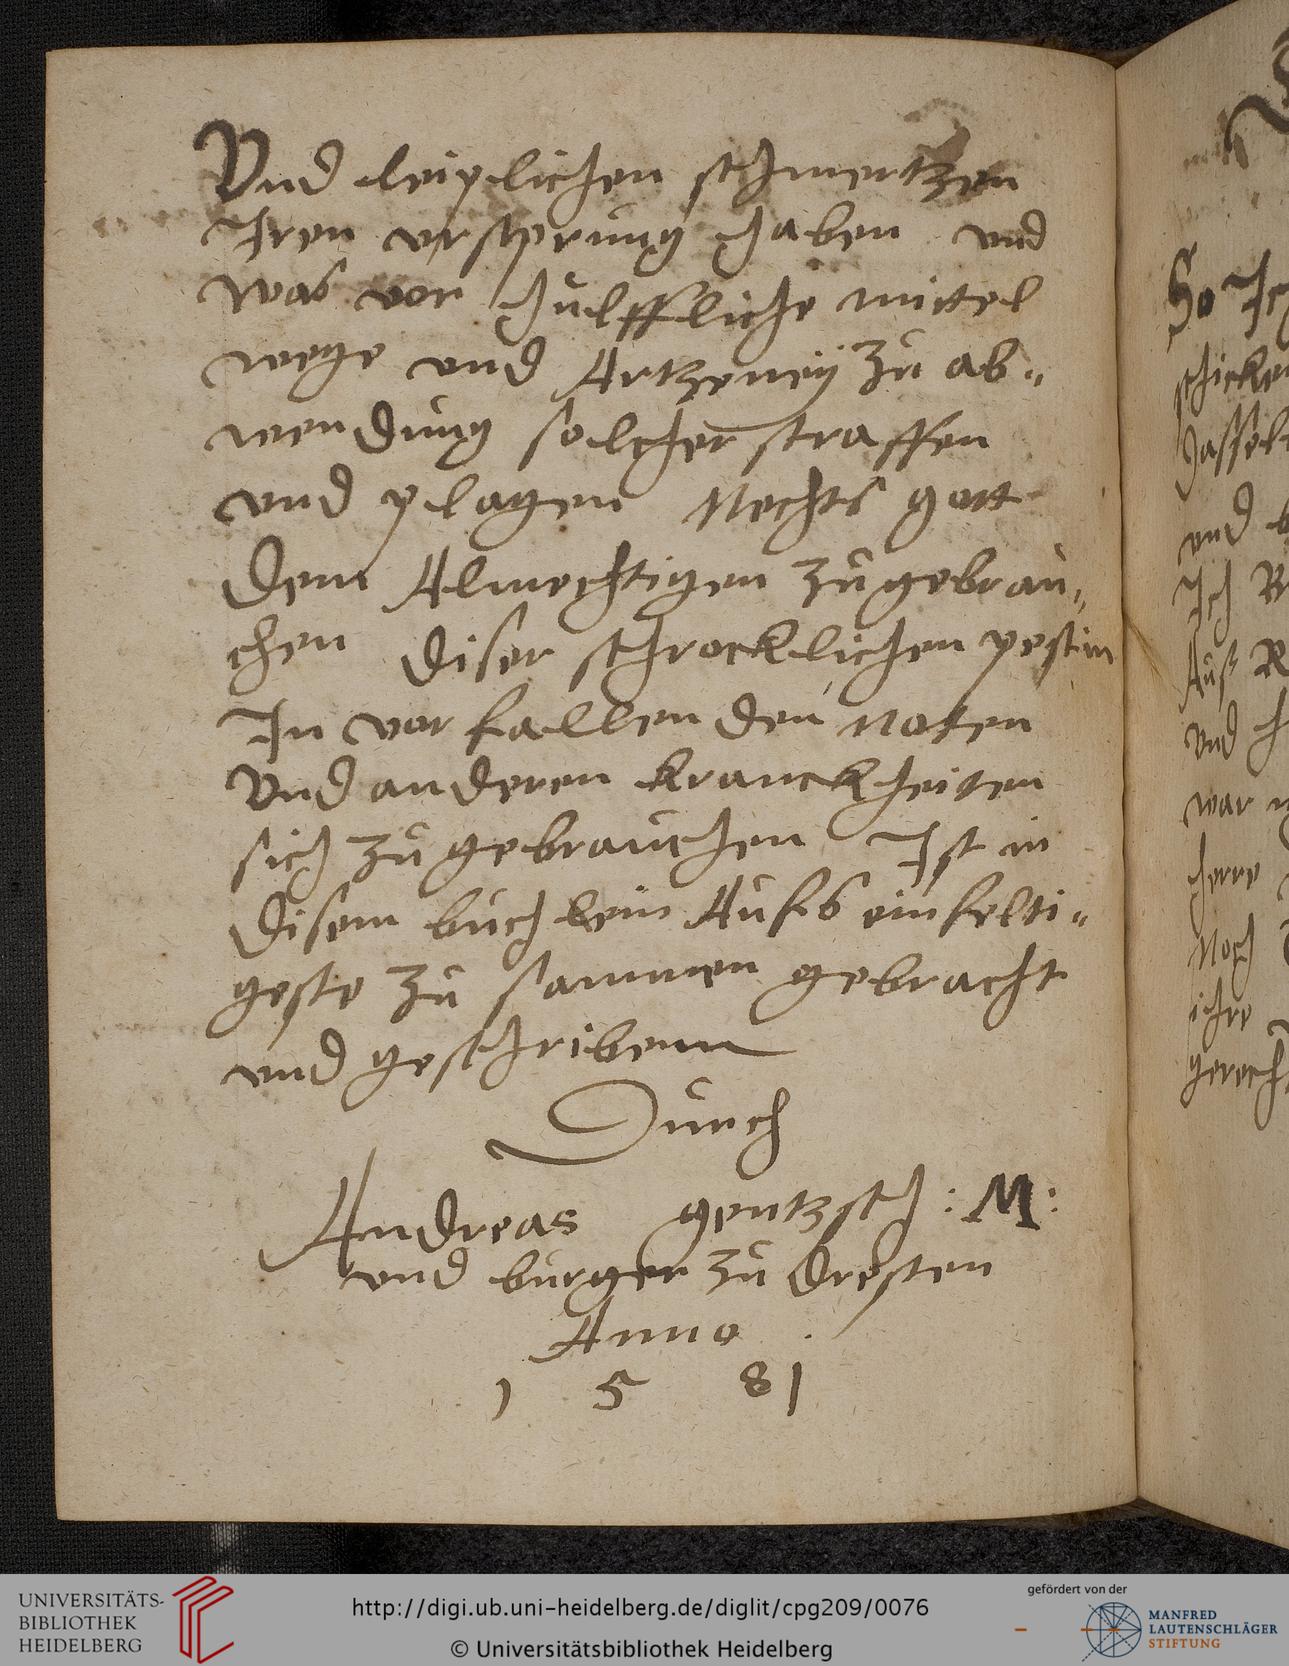 Vnd leiplichen schmertzen
Iren vrsprung haben vnd
was vor hulffliche mittel
wege vnd Artzeneÿ zu ab-
wendung solcher straffen
vnd plagen Nechts gott
dem Almechtigen zu gebrau-
chen diser schrocklichen pestim
In vor fallen den noten
Vnd anderen kranckheiten
sich zu gebrauchen Ist in
disem buchlein Aufs einfelti-
geste zu sammen gebracht
vnd geschribenn
Durch
Andreas gentzsch : M :
vnd burger zu dresten
Anno .
1 5 81
So Ich
schicken
vnd
Ich
Auß
vnd
war
herre
Noch
ihre
gerech
UNIVERSITÄTS-
BIBLIOTHEK
HEIDELBERG
http://digi.ub.uni-heidelberg.de/diglit/cpg209/0076
© Universitätsbibliothek Heidelberg
gefördert von der
MANFRED
LAUTENSCHLÄGER
STIFTUNG